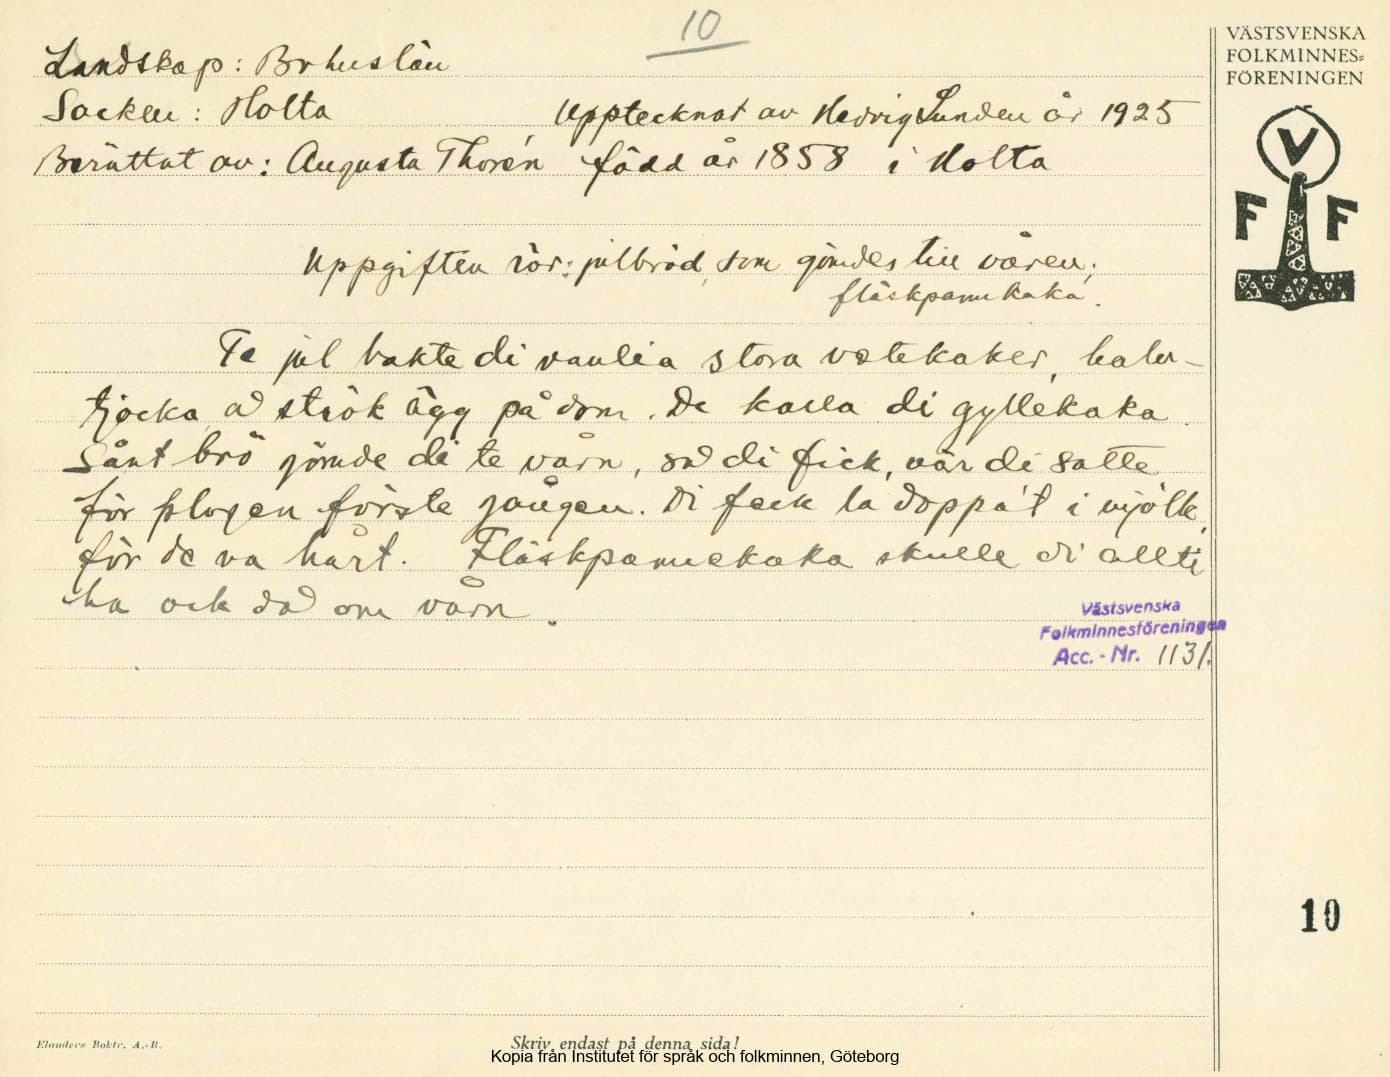 10
VÄSTSVENSKA
FOLKMINNES=
FÖRENINGEN
V
F F
Landskap: Bohuslän
Socken: Holta Upptecknat av Hedvig Lunden år 1925
Berättat av: Augusta Thorén född år 1858 i Holta
Uppgiften rör: julbröd, som gömdes till våren;
fläskpannkaka.
Te jul bakte di vanlia stora vetekaker, halv-
tjocka, å strök ägg på dom. De kalla di gyllekaka.
Sånt brö jömde di te vårn, så di fick, när di satte
för plogen förste jången. Di feck la doppa't i mjölk,
för de va hårt. Fläskpannekaka skulle di allti
ha ock då om vårn.
Västsvenska
Folkminnesföreningen
Acc.-Nr. 1131.
10
Elanders Boktr. A.-B.
Skriv endast på denna sida!
Kopia från Institutet för språk och folkminnen, Göteborg